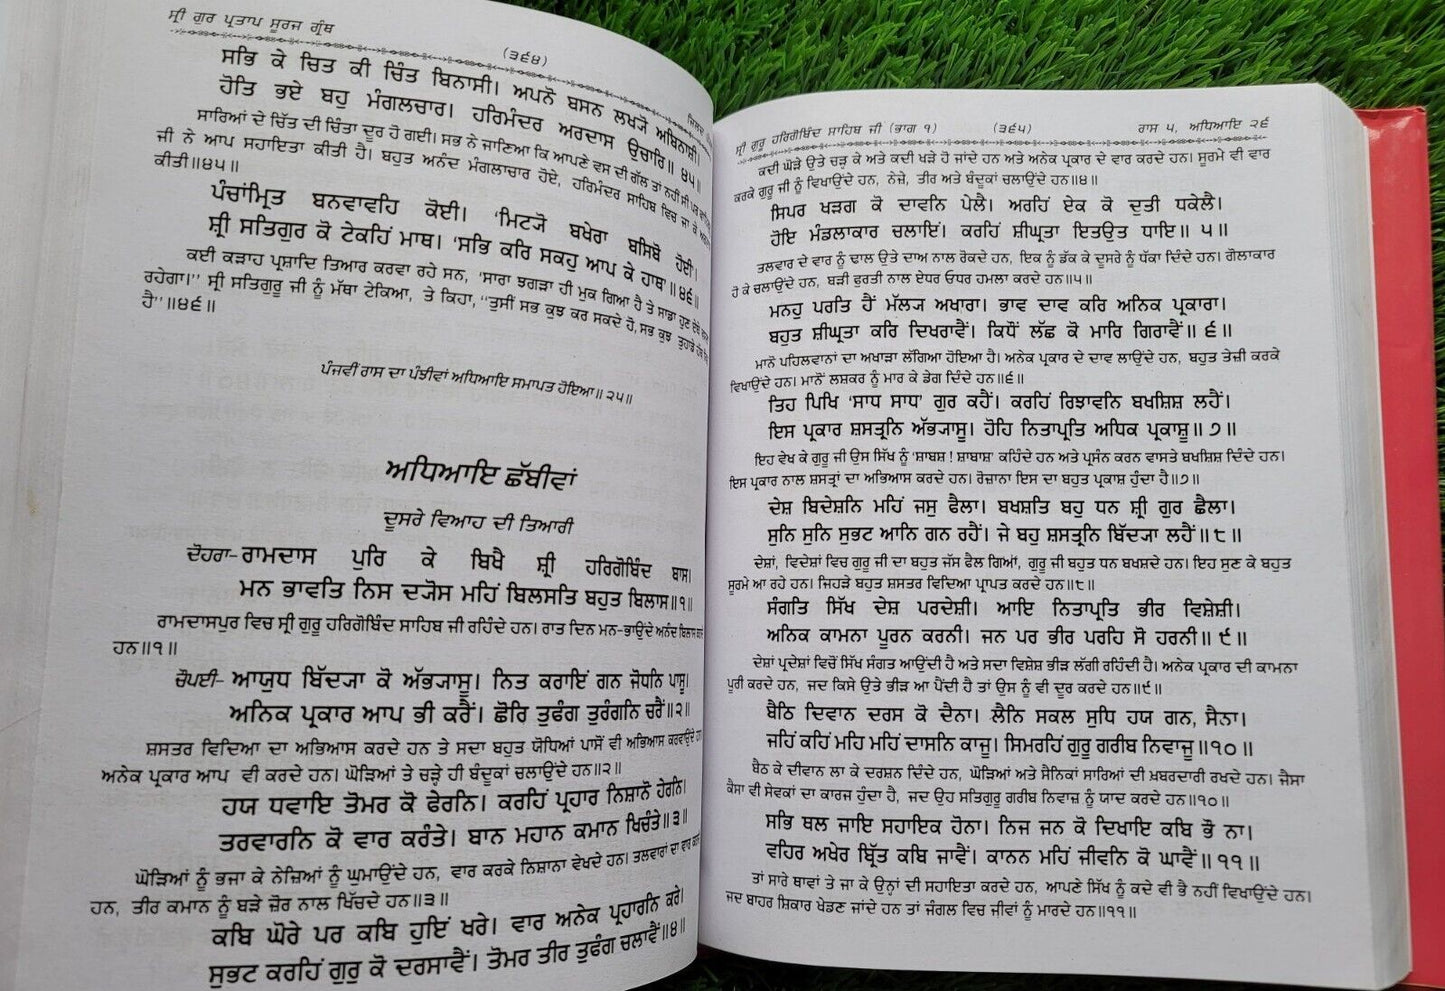 ਸ੍ਰੀ ਗੁਰ ਪ੍ਰਤਾਪ ਸੂਰਜ ਗ੍ਰੰਥ
(੩੬੪)
ਸਭਿ ਕੇ ਚਿਤ ਕੀ ਚਿੰਤ ਬਿਨਾਸੀ। ਅਪਨੋ ਬਸਨ ਲਖ੍ਯੋ ਅਬਿਨਾਸ਼ੀ।
ਹੋਤਿ ਭਏ ਬਹੁ ਮੰਗਲਚਾਰ। ਹਰਿਮੰਦਰ ਅਰਦਾਸ ਉਚਾਰਿ॥ ੪੫॥
ਸਾਰਿਆਂ ਦੇ ਚਿੱਤ ਦੀ ਚਿੰਤਾ ਦੂਰ ਹੋ ਗਈ। ਸਭ ਨੇ ਜਾਣਿਆ ਕਿ ਆਪਣੇ ਵਸ ਦੀ ਗੱਲ ਤਾਂ ਨਹੀਂ ਸੀ ਪਰ
ਜੀ ਨੇ ਆਪ ਸਹਾਇਤਾ ਕੀਤੀ ਹੈ। ਬਹੁਤ ਅਨੰਦ ਮੰਗਲਾਚਾਰ ਹੋਏ, ਹਰਿਮੰਦਰ ਸਾਹਿਬ ਵਿਚ ਜਾ ਕੇ
ਕੀਤੀ॥੪੫॥
ਪੰਚਾਂਮ੍ਰਿਤ ਬਨਵਾਵਹਿ ਕੋਈ। ‘ਮਿਟ੍ਯੋ ਬਖੇਰਾ ਬਸਿਬੋ ਹੋਈ।
ਸ਼੍ਰੀ ਸਤਿਗੁਰ ਕੋ ਟੇਕਹਿਂ ਮਾਥ। ‘ਸਭਿ ਕਰਿ ਸਕਹੁ ਆਪ ਕੇ ਹਾਥ’॥੪੬॥
ਕਈ ਕੜਾਹ ਪ੍ਰਸ਼ਾਦਿ ਤਿਆਰ ਕਰਵਾ ਰਹੇ ਸਨ, ‘ਸਾਰਾ ਝਗੜਾ ਹੀ ਮੁਕ ਗਿਆ ਹੈ ਤੇ ਸਾਡਾ ਹੁਣ ਏਥੇ
ਰਹੇਗਾ।’’ ਸ੍ਰੀ ਸਤਿਗੁਰੂ ਜੀ ਨੂੰ ਮੱਥਾ ਟੇਕਿਆ, ਤੇ ਕਿਹਾ, ‘‘ਤੁਸੀਂ ਸਭ ਕੁਝ ਕਰ ਸਕਦੇ ਹੋ, ਸਭ ਕੁਝ ਤੁਹਾਡੇ ਹੱਥ
ਹੈ’’॥੪੬॥
ਪੰਜਵੀਂ ਰਾਸ ਦਾ ਪੰਝੀਵਾਂ ਅਧਿਆਇ ਸਮਾਪਤ ਹੋਇਆ॥੨੫॥
ਅਧਿਆਇ ਛੱਬੀਵਾਂ
ਦੂਸਰੇ ਵਿਆਹ ਦੀ ਤਿਆਰੀ
ਦੋਹਰਾ–ਰਾਮਦਾਸ ਪੁਰਿ ਕੇ ਬਿਖੈ ਸ਼੍ਰੀ ਹਰਿਗੋਬਿੰਦ ਬਾਸ।
ਮਨ ਭਾਵਤਿ ਨਿਸ ਦ੍ਯੋਸ ਮਹਿਂ ਬਿਲਸਤਿ ਬਹੁਤ ਬਿਲਾਸ॥੧॥
ਰਾਮਦਾਸਪੁਰ ਵਿਚ ਸ੍ਰੀ ਗੁਰੂ ਹਰਿਗੋਬਿੰਦ ਸਾਹਿਬ ਜੀ ਰਹਿੰਦੇ ਹਨ। ਰਾਤ ਦਿਨ ਮਨ-ਭਾਉਂਦੇ ਅਨੰਦ ਬਿਲਾਸ ਕਰਦੇ
ਹਨ॥੧॥
ਚੌਪਈ– ਆਯੁਧ ਬਿੱਦ੍ਯਾ ਕੋ ਅੱਭ੍ਯਾਸੂ। ਨਿਤ ਕਰਾਇਂ ਗਨ ਜੋਧਨਿ ਪਾਸੂ।
ਅਨਿਕ ਪ੍ਰਕਾਰ ਆਪ ਭੀ ਕਰੈਂ। ਛੋਰਿ ਤੁਫੰਗ ਤੁਰੰਗਨਿ ਚਰੈਂ॥੨॥
ਸ਼ਸਤਰ ਵਿਦਿਆ ਦਾ ਅਭਿਆਸ ਕਰਦੇ ਹਨ ਤੇ ਸਦਾ ਬਹੁਤ ਯੋਧਿਆਂ ਪਾਸੋਂ ਵੀ ਅਭਿਆਸ ਕਰਵਾਉਂਦੇ ਹਨ
ਅਨੇਕ ਪ੍ਰਕਾਰ ਆਪ ਵੀ ਕਰਦੇ ਹਨ। ਘੋੜਿਆਂ ਤੇ ਚੜ੍ਹੇ ਹੀ ਬੰਦੂਕਾਂ ਚਲਾਉਂਦੇ ਹਨ॥੨॥
ਹਯ ਧਵਾਇ ਤੋਮਰ ਕੋ ਫੇਰਨਿ। ਕਰਹਿਂ ਪ੍ਰਹਾਰ ਨਿਸ਼ਾਨੋ ਹੇਰਨਿ।
ਤਰਵਾਰਨਿ ਕੋ ਵਾਰ ਕਰੰਤੇ। ਬਾਨ ਮਹਾਨ ਕਮਾਨ ਖਿਚੰਤੇ॥੩॥
ਘੋੜਿਆਂ ਨੂੰ ਭਜਾ ਕੇ ਨੇਜ਼ਿਆਂ ਨੂੰ ਘੁਮਾਉਂਦੇ ਹਨ, ਵਾਰ ਕਰਕੇ ਨਿਸ਼ਾਨਾ ਵੇਖਦੇ ਹਨ। ਤਲਵਾਰਾਂ ਦਾ ਵਾਰ ਕਰਦੇ
ਹਨ, ਤੀਰ ਕਮਾਨ ਨੂੰ ਬੜੇ ਜ਼ੋਰ ਨਾਲ ਖਿੱਚਦੇ ਹਨ॥੩॥
ਕਬਿ ਘੋਰੇ ਪਰ ਕਬਿ ਹੁਇਂ ਖਰੇ। ਵਾਰ ਅਨੇਕ ਪ੍ਰਹਾਰਨਿ ਕਰੇ।
ਸੁਭਟ ਕਰਹਿਂ ਗੁਰੁ ਕੋ ਦਰਸਾਵੈਂ। ਤੋਮਰ ਤੀਰ ਤੁਫੰਗ ਚਲਾਵੈਂ॥੪॥
ਸ੍ਰੀ ਗੁਰੂ ਹਰਿਗੋਬਿੰਦ ਸਾਹਿਬ ਜੀ (ਭਾਗ ੧) (੩੬੫) ਰਾਸ ੫, ਅਧਿਆਇ ੨੬
ਕਦੀ ਘੋੜੇ ਉਤੇ ਚੜ ਕੇ ਅਤੇ ਕਦੀ ਖੜੇ ਹੋ ਜਾਂਦੇ ਹਨ ਅਤੇ ਅਨੇਕ ਪ੍ਰਕਾਰ ਦੇ ਵਾਰ ਕਰਦੇ ਹਨ। ਸੂਰਮੇ ਵੀ ਵਾਰ
ਕਰਕੇ ਗੁਰੂ ਜੀ ਨੂੰ ਵਿਖਾਉਂਦੇ ਹਨ, ਨੇਜ਼ੇ, ਤੀਰ ਅਤੇ ਬੰਦੂਕਾਂ ਚਲਾਉਂਦੇ ਹਨ॥੪॥
ਸਿਪਰ ਖੜਗ ਕੋ ਦਾਵਨਿ ਪੇਲੈ। ਅਰਹਿਂ ਏਕ ਕੋ ਦੁਤੀ ਧਕੇਲੈ।
ਹੋਇ ਮੰਡਲਾਕਾਰ ਚਲਾਇਂ। ਕਰਹਿਂ ਸ਼ੀਘ੍ਰਤਾ ਇਤਉਤ ਧਾਇ॥ ੫॥
ਤਲਵਾਰ ਦੇ ਵਾਰ ਨੂੰ ਢਾਲ ਉਤੇ ਦਾਅ ਨਾਲ ਰੋਕਦੇ ਹਨ, ਇਕ ਨੂੰ ਡੱਕ ਕੇ ਦੂਸਰੇ ਨੂੰ ਧੱਕਾ ਦਿੰਦੇ ਹਨ। ਗੋਲਾਕਾਰ
ਹੋ ਕੇ ਚਲਾਉਂਦੇ ਹਨ, ਬੜੀ ਫੁਰਤੀ ਨਾਲ ਏਧਰ ਓਧਰ ਹਮਲਾ ਕਰਦੇ ਹਨ॥੫॥
ਮਨਹੁ ਪਰਤਿ ਹੈਂ ਮੱਲ੍ਯ ਅਖਾਰਾ। ਭਾਵ ਦਾਵ ਕਰਿ ਅਨਿਕ ਪ੍ਰਕਾਰਾ।
ਬਹੁਤ ਸ਼ੀਘ੍ਰਤਾ ਕਰਿ ਦਿਖਰਾਵੈਂ। ਕਿਧੌਂ ਲੱਛ ਕੋ ਮਾਰਿ ਗਿਰਾਵੈਂ॥ ੬॥
ਮਾਨੋ ਪਹਿਲਵਾਨਾਂ ਦਾ ਅਖਾੜਾ ਲੱਗਿਆ ਹੋਇਆ ਹੈ। ਅਨੇਕ ਪ੍ਰਕਾਰ ਦੇ ਦਾਵ ਲਾਉਂਦੇ ਹਨ, ਬਹੁਤ ਤੇਜ਼ੀ ਕਰਕੇ
ਵਿਖਾਉਂਦੇ ਹਨ। ਮਾਨੋਂ ਲਸ਼ਕਰ ਨੂੰ ਮਾਰ ਕੇ ਡੇਗ ਦਿੰਦੇ ਹਨ॥੬॥
ਤਿਹ ਪਿਖਿ ‘ਸਾਧ ਸਾਧ’ ਗੁਰ ਕਹੈਂ। ਕਰਹਿਂ ਰਿਝਾਵਨਿ ਬਖਸ਼ਿਸ਼ ਲਹੈਂ।
ਇਸ ਪ੍ਰਕਾਰ ਸ਼ਸਤ੍ਰਨਿ ਅੱਭ੍ਯਾਸੂ। ਹੋਹਿ ਨਿਤਾਪ੍ਰਤਿ ਅਧਿਕ ਪ੍ਰਕਾਸ਼ੂ॥ ੭॥
ਇਹ ਵੇਖ ਕੇ ਗੁਰੂ ਜੀ ਉਸ ਸਿੱਖ ਨੂੰ ‘ਸ਼ਾਬਸ਼! ਸ਼ਾਬਾਸ਼’ ਕਹਿੰਦੇ ਹਨ ਅਤੇ ਪ੍ਰਸੰਨ ਕਰਨ ਵਾਸਤੇ ਬਖਸ਼ਿਸ਼ ਦਿੰਦੇ ਹਨ।
ਇਸ ਪ੍ਰਕਾਰ ਨਾਲ ਸ਼ਸਤ੍ਰਾਂ ਦਾ ਅਭਿਆਸ ਕਰਦੇ ਹਨ। ਰੋਜ਼ਾਨਾ ਇਸ ਦਾ ਬਹੁਤ ਪ੍ਰਕਾਸ਼ ਹੁੰਦਾ ਹੈ॥੭॥
ਦੇਸ਼ ਬਿਦੇਸ਼ਨਿ ਮਹਿਂ ਜਸੁ ਫੈਲਾ। ਬਖਸ਼ਤਿ ਬਹੁ ਧਨ ਸ਼੍ਰੀ ਗੁਰ ਛੈਲਾ।
ਸੁਨਿ ਸੁਨਿ ਸੁਭਟ ਆਨਿ ਗਨ ਰਹੈਂ। ਜੇ ਬਹੁ ਸ਼ਸਤ੍ਰਨਿ ਬਿੱਦ੍ਯਾ ਲਹੈਂ॥੮॥
ਦੇਸ਼ਾਂ, ਵਿਦੇਸ਼ਾਂ ਵਿਚ ਗੁਰੂ ਜੀ ਦਾ ਬਹੁਤ ਜੱਸ ਫੈਲ ਗਿਆਂ, ਗੁਰੂ ਜੀ ਬਹੁਤ ਧਨ ਬਖਸ਼ਦੇ ਹਨ। ਇਹ ਸੁਣ ਕੇ ਬਹੁਤ
ਸੂਰਮੇ ਆ ਰਹੇ ਹਨ। ਜਿਹੜੇ ਬਹੁਤ ਸ਼ਸਤਰ ਵਿਦਿਆ ਪ੍ਰਾਪਤ ਕਰਦੇ ਹਨ॥੮॥
ਸੰਗਤਿ ਸਿੱਖ ਦੇਸ਼ ਪਰਦੇਸ਼ੀ। ਆਇ ਨਿਤਾਪ੍ਰਤਿ ਭੀਰ ਵਿਸ਼ੇਸ਼ੀ।
ਅਨਿਕ ਕਾਮਨਾ ਪੂਰਨ ਕਰਨੀ। ਜਨ ਪਰ ਭੀਰ ਪਰਹਿ ਸੋ ਹਰਨੀ॥ ੯॥
ਦੇਸ਼ਾਂ ਪ੍ਰਦੇਸ਼ਾਂ ਵਿਚੋਂ ਸਿੱਖ ਸੰਗਤ ਆਉਂਦੀ ਹੈ ਅਤੇ ਸਦਾ ਵਿਸ਼ੇਸ਼ ਭੀੜ ਲੱਗੀ ਰਹਿੰਦੀ ਹੈ। ਅਨੇਕ ਪ੍ਰਕਾਰ ਦੀ ਕਾਮਨਾ
ਪੂਰੀ ਕਰਦੇ ਹਨ, ਜਦ ਕਿਸੇ ਉਤੇ ਭੀੜ ਆ ਪੈਂਦੀ ਹੈ ਤਾਂ ਉਸ ਨੂੰ ਵੀ ਦੂਰ ਕਰਦੇ ਹਨ॥੯॥
ਬੈਠਿ ਦਿਵਾਨ ਦਰਸ ਕੋ ਦੈਨਾ। ਲੈਨਿ ਸਕਲ ਸੁਧਿ ਹਯ ਗਨ, ਸੈਨਾ।
ਜਹਿਂ ਕਹਿਂ ਮਹਿ ਮਹਿਂ ਦਾਸਨਿ ਕਾਜੂ। ਸਿਮਰਹਿਂ ਗੁਰੂ ਗਰੀਬ ਨਿਵਾਜੂ॥੧੦॥
ਬੈਠ ਕੇ ਦੀਵਾਨ ਲਾ ਕੇ ਦਰਸ਼ਨ ਦਿੰਦੇ ਹਨ, ਘੋੜਿਆਂ ਅਤੇ ਸੈਨਿਕਾਂ ਸਾਰਿਆਂ ਦੀ ਖ਼ਬਰਦਾਰੀ ਰਖਦੇ ਹਨ। ਜੈਸਾ
ਕੈਸਾ ਵੀ ਸੇਵਕਾਂ ਦਾ ਕਾਰਜ ਹੁੰਦਾ ਹੈ, ਜਦ ਉਹ ਸਤਿਗੁਰੂ ਗਰੀਬ ਨਿਵਾਜ਼ ਨੂੰ ਯਾਦ ਕਰਦੇ ਹਨ॥੧੦॥
ਸਭਿ ਥਲ ਜਾਇ ਸਹਾਇਕ ਹੋਨਾ। ਨਿਜ ਜਨ ਕੋ ਦਿਖਾਇ ਕਬਿ ਭੌ ਨਾ।
ਵਹਿਰ ਅਖੇਰ ਬ੍ਰਿੱਤ ਕਬਿ ਜਾਵੈਂ। ਕਾਨਨ ਮਹਿਂ ਜੀਵਨਿ ਕੋ ਘਾਵੈਂ॥ ੧੧॥
ਤਾਂ ਸਾਰੇ ਥਾਵਾਂ ਤੇ ਜਾ ਕੇ ਉਨ੍ਹਾਂ ਦੀ ਸਹਾਇਤਾ ਕਰਦੇ ਹਨ, ਆਪਣੇ ਸਿੱਖ ਨੂੰ ਕਦੇ ਵੀ ਭੈ ਨਹੀਂ ਵਿਖਾਉਂਦੇ ਹਨ।
ਜਦ ਬਾਹਰ ਸ਼ਿਕਾਰ ਖੇਡਣ ਜਾਂਦੇ ਹਨ ਤਾਂ ਜੰਗਲ ਵਿਚ ਜੀਵਾਂ ਨੂੰ ਮਾਰਦੇ ਹਨ॥੧੧॥